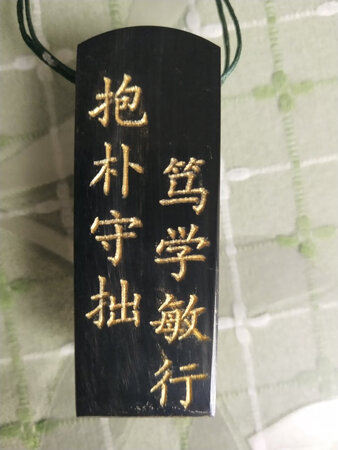 抱朴守拙
笃学敏行